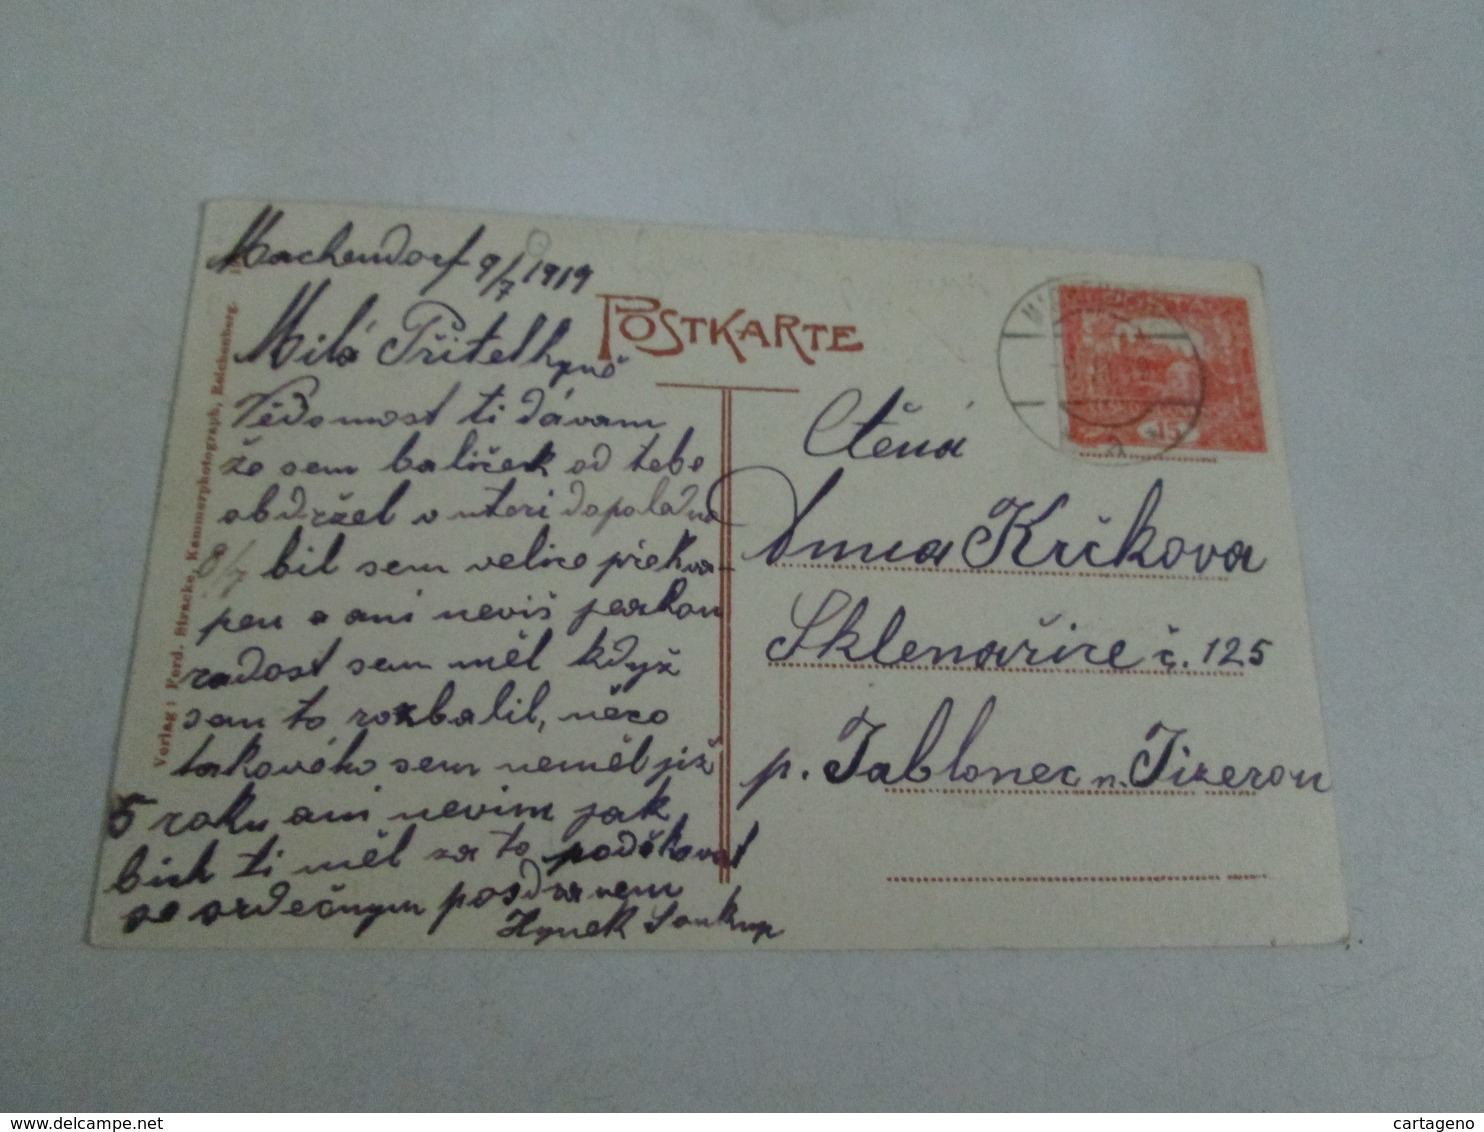 Machendorf 9/7 1919
Milá Přitelkyně
Vědomost ti dávam
že sem baliček od tebe
obdržel v uteri dopoledne
8/7 bil sem velice překva-
pen a ani neviš jeakou
radost sem měl když
sem to rozbalil, něco
takového sem neměl již
5 roku ani nevim jak
bich ti měl za to poděkovat
se srdečnym posdravem
Hynek Soukup
POSTKARTE
Ctěná
Anna Krčkova
Sklenařice č. 125
p. Jablonec n. Jizerou
Verlag: Ferd. Stracke, Kammerphotograph, Reichenberg.
15
delcampe.net
cartageno